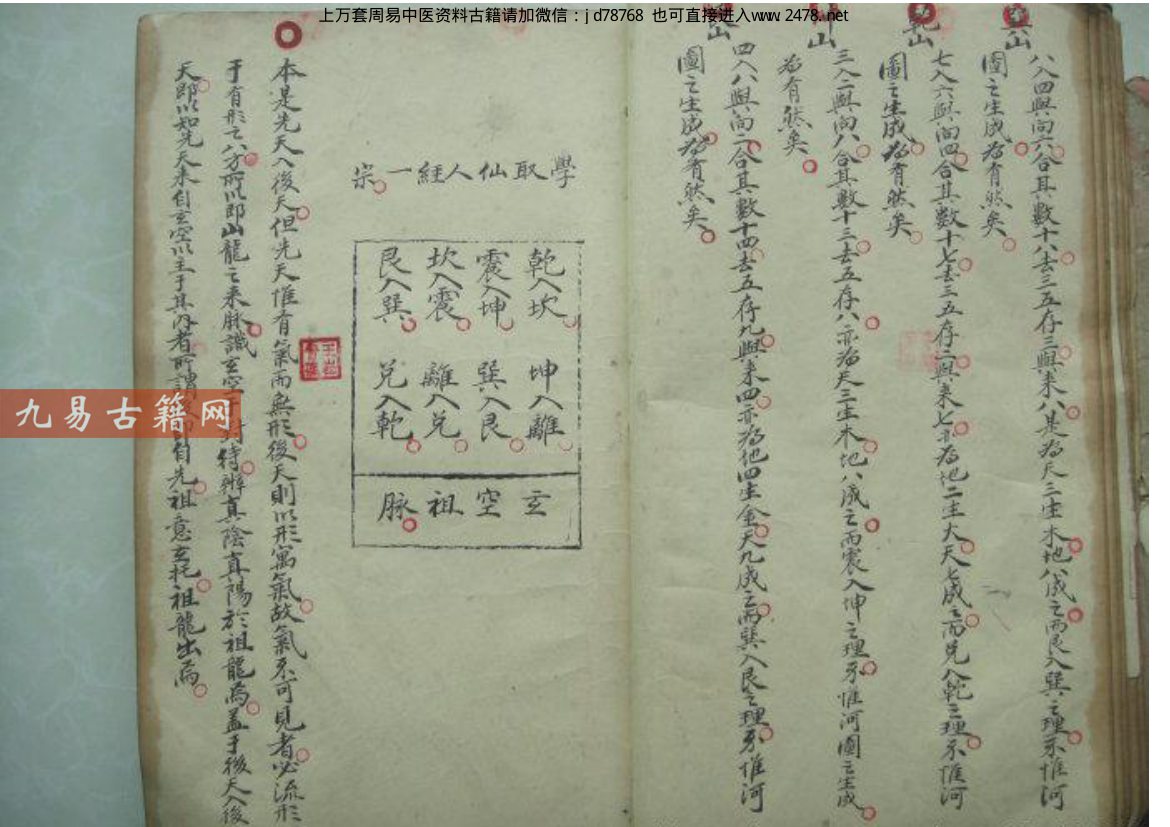 上万套周易中医资料古籍请加微信：jd78768 也可直接进入www.2478.net
巽山
八入四與向六合其數十八去三五存三與來八是為天三生木地八成之而艮入巽之理不惟河
圖之生成為有然矣
乾山
七入六與向四合其數十七去三五存二與來七是為地二生火天七成之而兌入乾之理不惟河
圖之生成為有然矣
山
三入二與向八合其數十三去五存八亦為天三生木地八成之而震入坤之理不惟河圖之生成
為有然矣
山
四入八與向二合其數十四去五存九與來四亦為地四生金天九成之而巽入艮之理不惟河
圖之生成為有然矣
學取仙人經一宗
乾入坎 坤入離 玄
震入坤 巽入艮 空
坎入震 離入兌 祖
艮入巽 兌入乾 脉
本是先天入後天但先天惟有氣而無形後天則以形寓氣故氣不可見者必流形
于有形之八方所以即山龍之來脉識玄空之對待辨真陰真陽於祖龍為蓋于後天入後
天即以知先天來自玄空以主于其內者所謂自先祖意玄托祖龍出為
九易古籍网